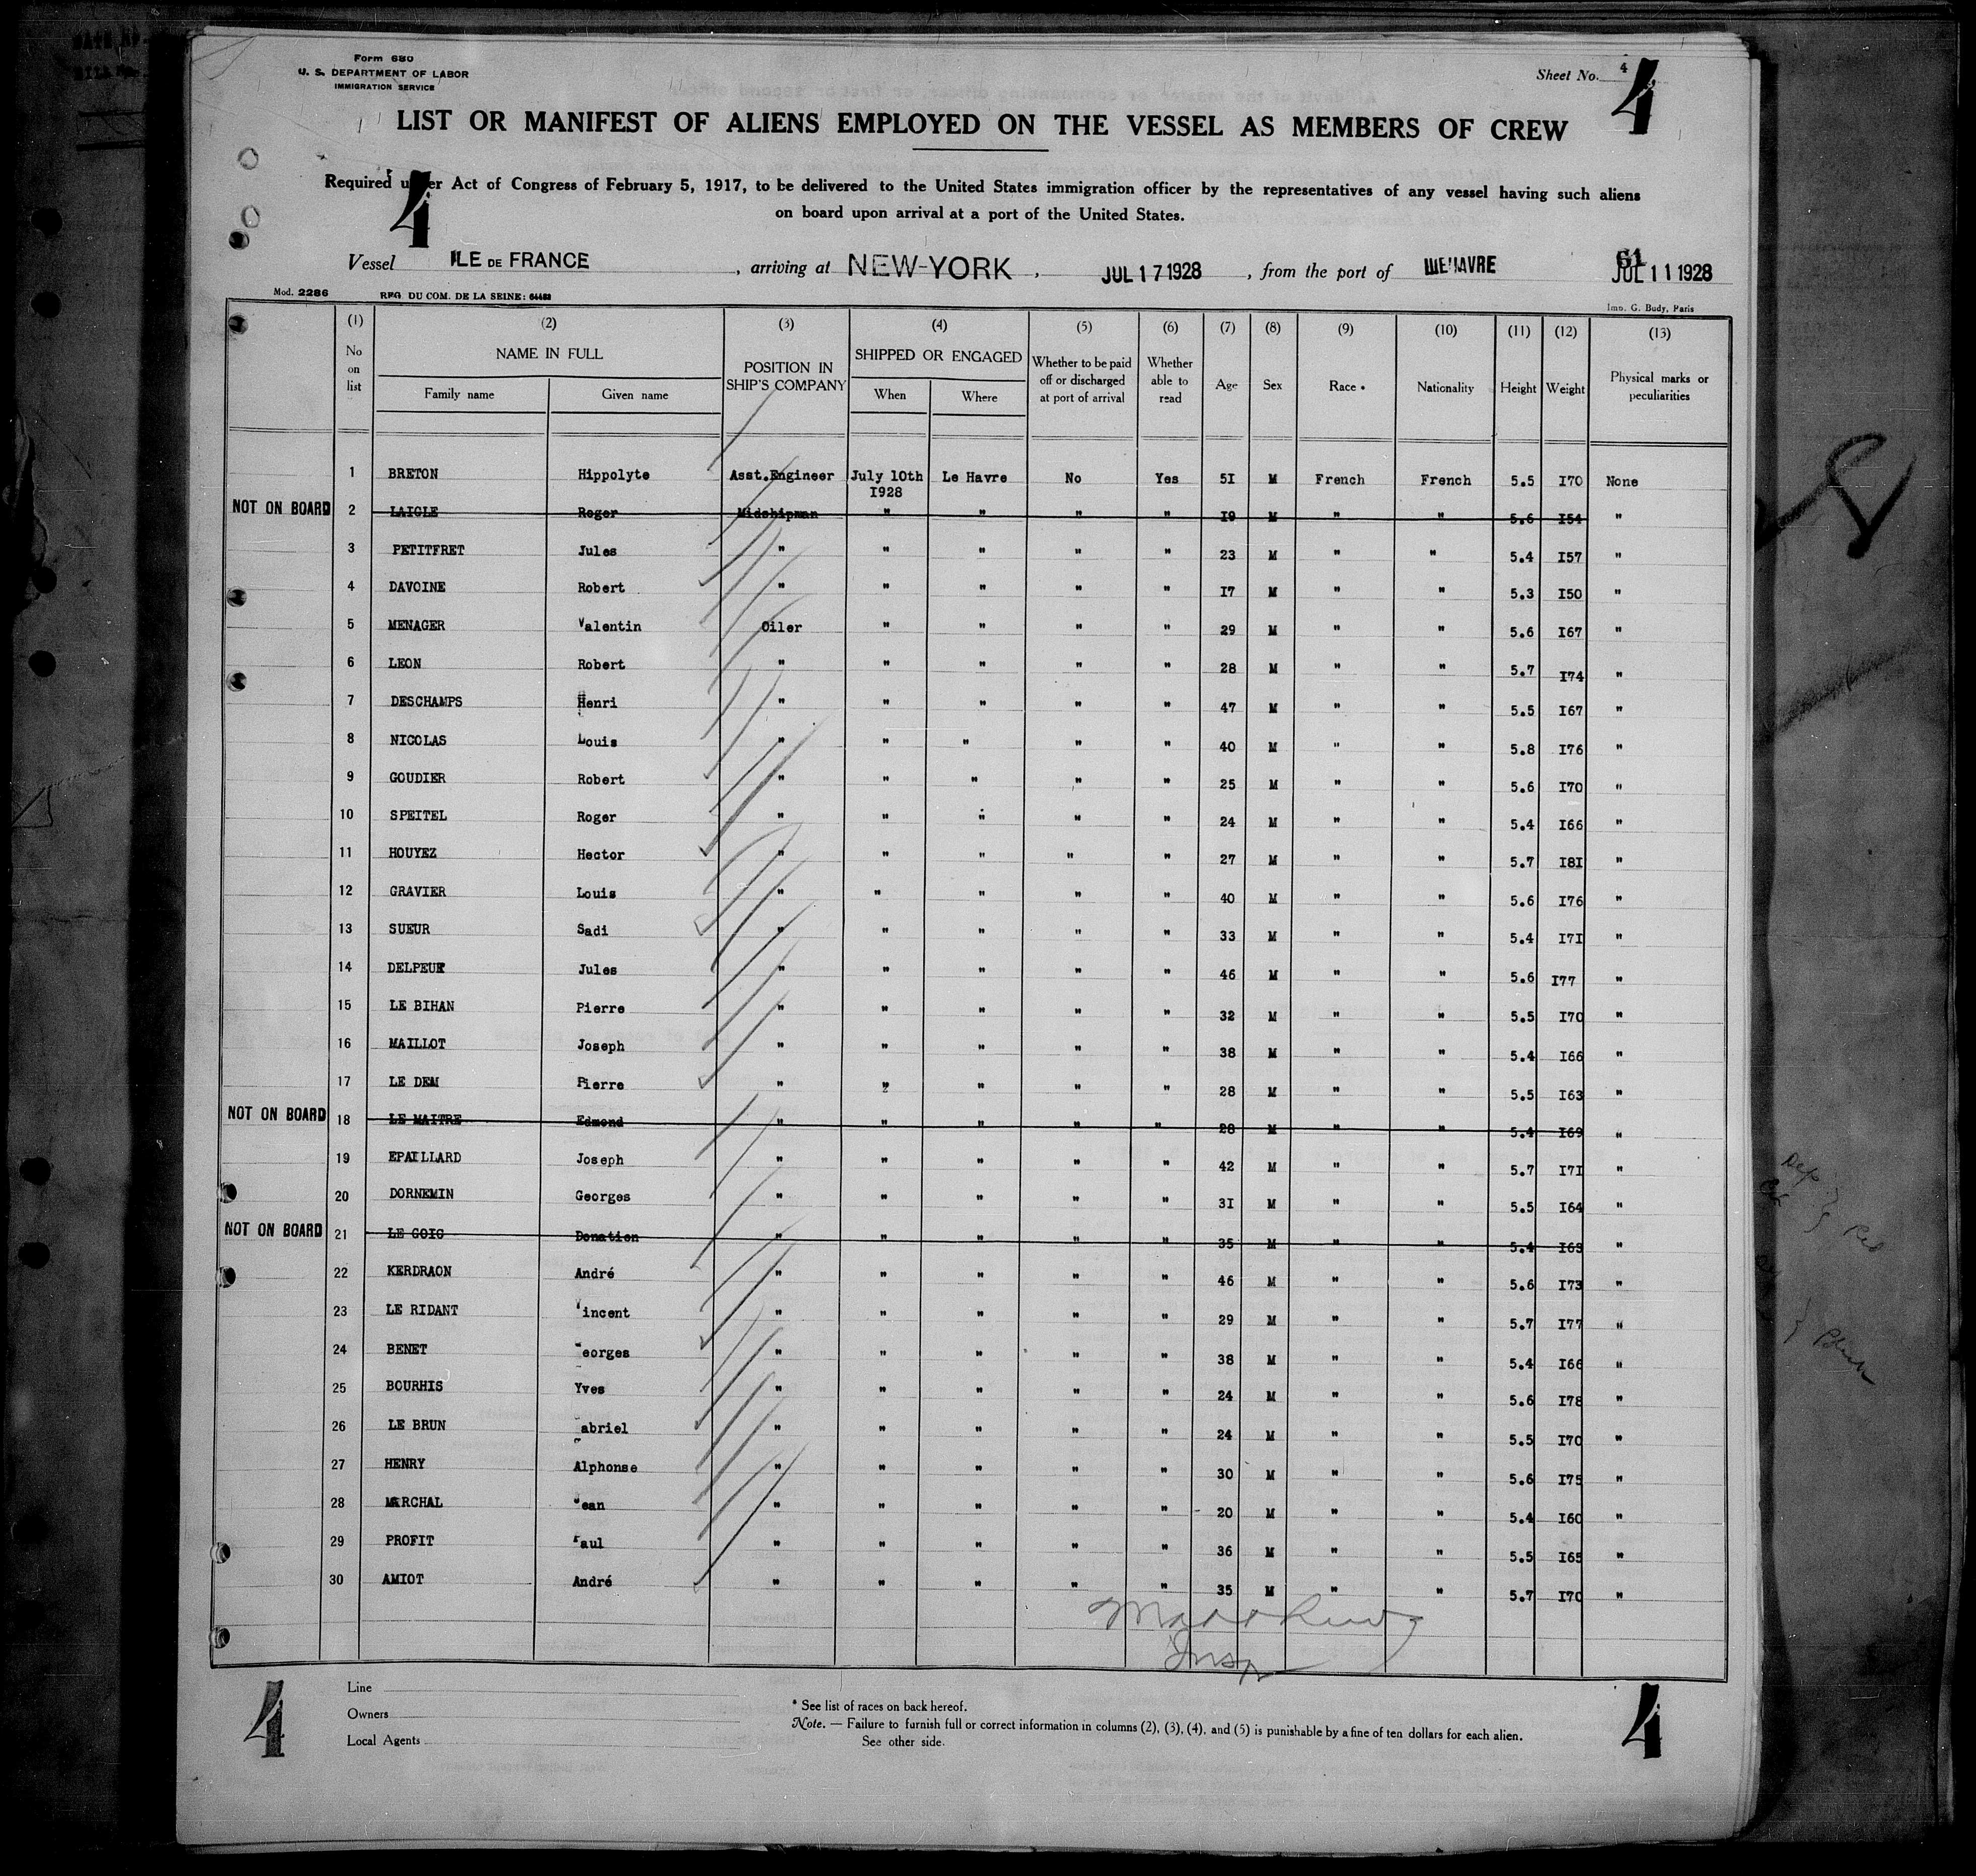 Form 680
U. S. DEPARTMENT OF LABOR
IMMIGRATION SERVICE
Sheet No. 4
4
LIST OR MANIFEST OF ALIENS EMPLOYED ON THE VESSEL AS MEMBERS OF CREW
Required under Act of Congress of February 5, 1917, to be delivered to the United States immigration officer by the representatives of any vessel having such aliens
on board upon arrival at a port of the United States.
4
Vessel ILE DE FRANCE, arriving at NEW-YORK, JUL 17 1928, from the port of HAVRE JUL 11 1928
61
Mod. 2286 REG. DU COM. DE LA SEINE: 64483 Imp. G. Budy, Paris
(1) (2) (3) (4) (5) (6) (7) (8) (9) (10) (11) (12) (13)
No on list NAME IN FULL POSITION IN SHIP'S COMPANY SHIPPED OR ENGAGED Whether to be paid off or discharged at port of arrival Whether able to read Age Sex Race * Nationality Height Weight Physical marks or peculiarities
Family name Given name When Where
1 BRETON Hippolyte Asst.Engineer July 10th 1928 Le Havre No Yes 5I M French French 5.5 I70 None
NOT ON BOARD 2 LAIGLE Roger Midshipman " " " " I9 M " " 5.6 I54 "
3 PETITFRET Jules " " " " " 23 M " " 5.4 I57 "
4 DAVOINE Robert " " " " " I7 M " " 5.3 I50 "
5 MENAGER Valentin Oiler " " " " 29 M " " 5.6 I67 "
6 LEON Robert " " " " " 28 M " " 5.7 I74 "
7 DESCHAMPS Henri " " " " " 47 M " " 5.5 I67 "
8 NICOLAS Louis " " " " " 40 M " " 5.8 I76 "
9 GOUDIER Robert " " " " " 25 M " " 5.6 I70 "
10 SPEITEL Roger " " " " " 24 M " " 5.4 I66 "
11 HOUYEZ Hector " " " " " 27 M " " 5.7 I8I "
12 GRAVIER Louis " " " " " 40 M " " 5.6 I76 "
13 SUEUR Sadi " " " " " 33 M " " 5.4 I7I "
14 DELPEUX Jules " " " " " 46 M " " 5.6 I77 "
15 LE BIHAN Pierre " " " " " 32 M " " 5.5 I70 "
16 MAILLOT Joseph " " " " " 38 M " " 5.4 I66 "
17 LE DEM Pierre " " " " " 28 M " " 5.5 I63 "
NOT ON BOARD 18 LE MAITRE Edmond " " " " " 28 M " " 5.4 I69 "
19 EPAILLARD Joseph " " " " " 42 M " " 5.7 I7I "
20 DORNEMIN Georges " " " " " 3I M " " 5.5 I64 "
NOT ON BOARD 21 LE GOIG Donation " " " " " 35 M " " 5.4 I69 "
22 KERDRAON André " " " " " 46 M " " 5.6 I73 "
23 LE RIDANT Vincent " " " " " 29 M " " 5.7 I77 "
24 BENET Georges " " " " " 38 M " " 5.4 I66 "
25 BOURHIS Yves " " " " " 24 M " " 5.6 I78 "
26 LE BRUN Gabriel " " " " " 24 M " " 5.5 I70 "
27 HENRY Alphonse " " " " " 30 M " " 5.6 I75 "
28 MARCHAL Jean " " " " " 20 M " " 5.4 I60 "
29 PROFIT Paul " " " " " 36 M " " 5.5 I65 "
30 AMIOT André " " " " " 35 M " " 5.7 I70 "
Insp
4
Line
Owners
Local Agents
* See list of races on back hereof.
Note. — Failure to furnish full or correct information in columns (2), (3), (4), and (5) is punishable by a fine of ten dollars for each alien.
See other side.
4